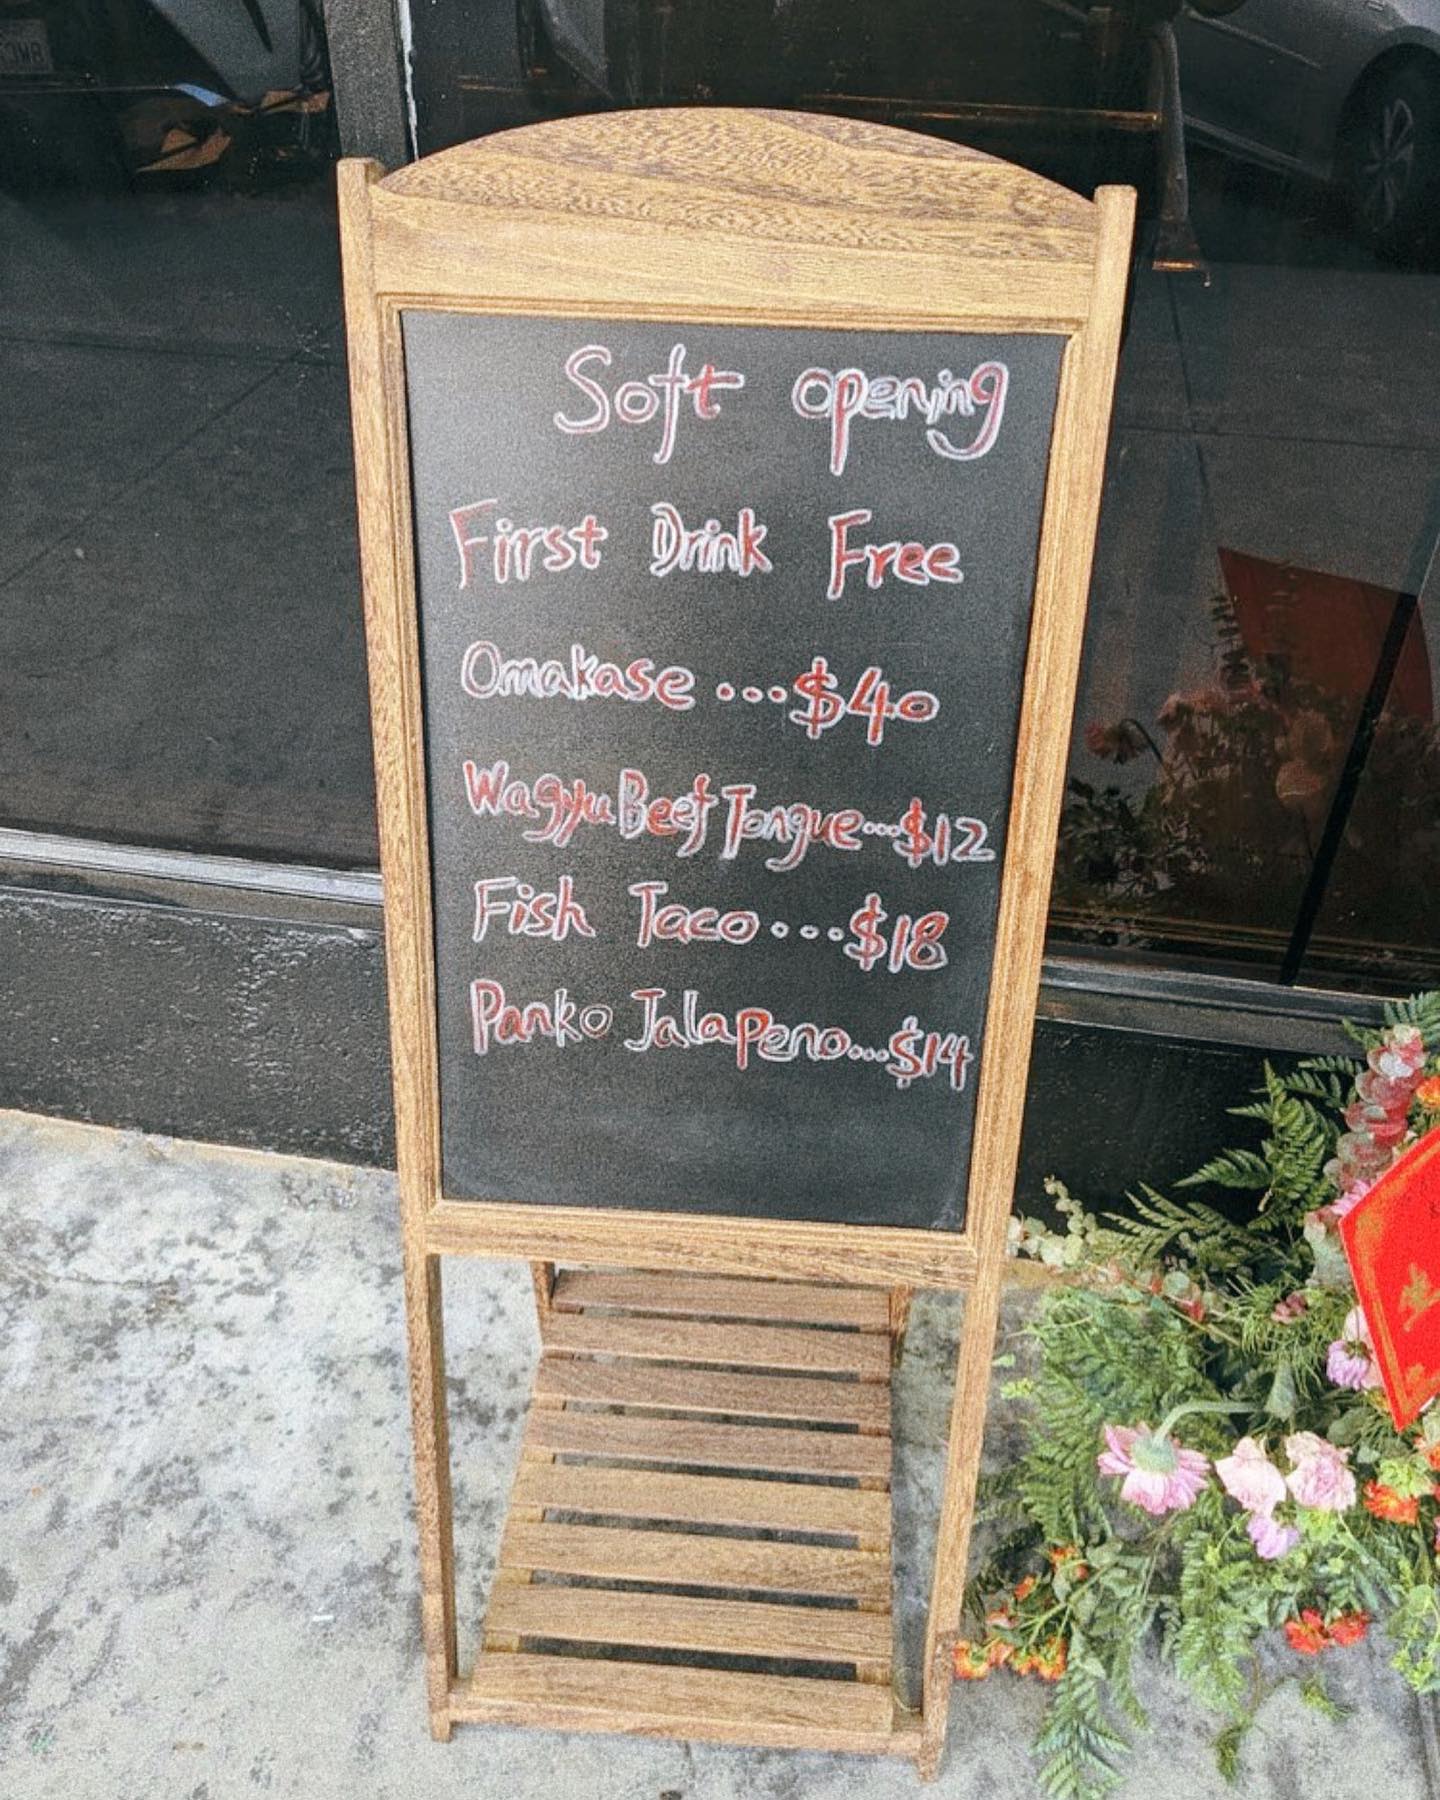 Soft opening
First Drink Free
Omakase ...$40
Wagyu Beef Tongue...$12
Fish Taco...$18
Panko Jalapeno...$14